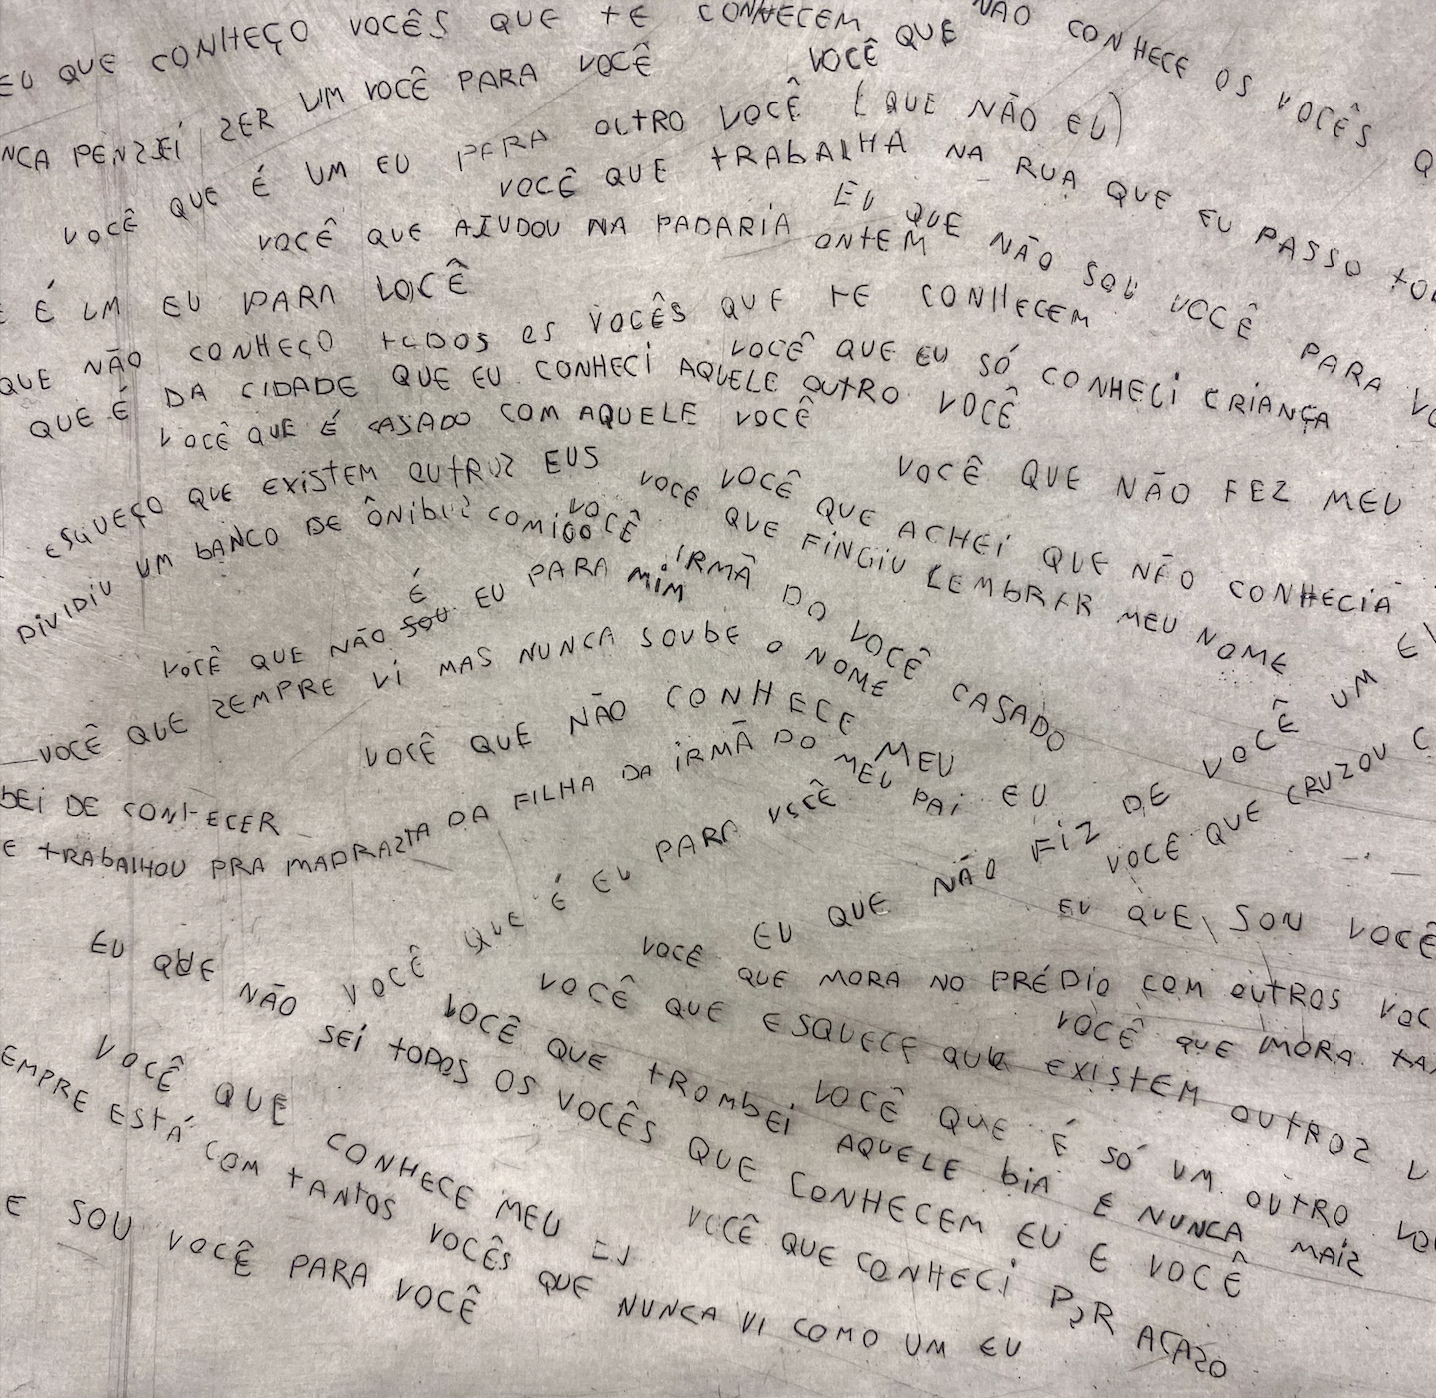 EU QUE CONHEÇO VOCÊS QUE TE CONHECEM
VOCÊ QUE NÃO CONHECE OS VOCÊS Q
NCA PENSEI SER UM VOCÊ PARA VOCÊ
VOCÊ QUE É UM EU PARA OUTRO VOCÊ (QUE NÃO EU)
VOCÊ QUE TRABALHA NA RUA QUE EU PASSO TO
VOCÊ QUE AJUDOU NA PADARIA ONTEM
EU QUE NÃO SOU VOCÊ PARA VO
E É UM EU PARA VOCÊ
QUE NÃO CONHEÇO TODOS OS VOCÊS QUE TE CONHECEM
VOCÊ QUE EU SÓ CONHECI CRIANÇA
QUE É DA CIDADE QUE EU CONHECI AQUELE OUTRO VOCÊ
VOCÊ QUE É CASADO COM AQUELE VOCÊ
ESQUEÇO QUE EXISTEM OUTROS EUS
VOCÊ QUE NÃO FEZ MEU
VOCÊ QUE ACHEI QUE NÃO CONHECIA
VOCE QUE FINGIU LEMBRAR MEU NOME
DIVIDIU UM BANCO DE ÔNIBUS COMIGO
VOCÊ IRMÃ DO VOCÊ CASADO
VOCÊ QUE NÃO SOU É EU PARA MIM
VOCÊ QUE SEMPRE VI MAS NUNCA SOUBE O NOME
VOCÊ QUE NÃO CONHECE MEU EU
BEI DE CONHECER
E TRABALHOU PRA MADRASTA DA FILHA DA IRMÃ DO MEU PAI
EU QUE NÃO FIZ DE VOCÊ UM E
VOCE QUE CRUZOU C
VOCÊ QUE É EU PARA VOCÊ
EU QUE SOU VOCÊ
VOCE QUE MORA NO PRÉDIO COM OUTROS VOC
VOCÊ QUE MORA TA
VOCÊ QUE ESQUECE QUE EXISTEM OUTROS V
VOCÊ QUE É SÓ UM OUTRO VO
VOCÊ QUE TROMBEI AQUELE DIA E NUNCA MAIS
EU QUE NÃO SEI TODOS OS VOCÊS QUE CONHECEM EU E VOCÊ
VOCÊ QUE CONHECE MEU EU
VOCÊ QUE CONHECI POR ACASO
EMPRE ESTÁ COM TANTOS VOCÊS QUE NUNCA VI COMO UM EU
E SOU VOCÊ PARA VOCÊ